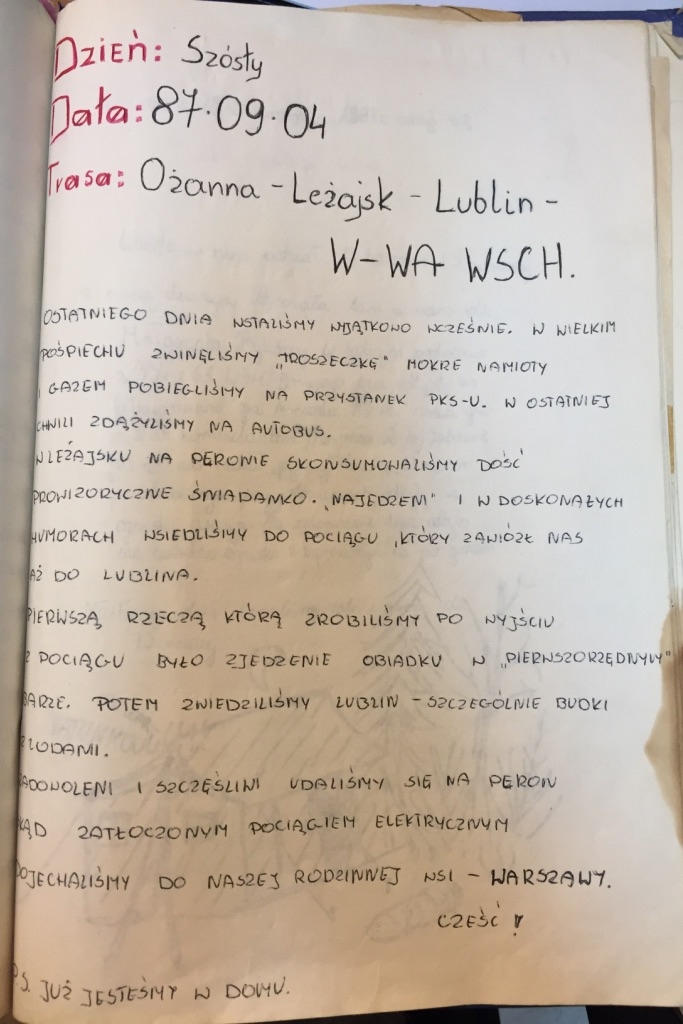 Dzień: Szósty
Data: 87.09.04
Trasa: Ożanna - Leżajsk - Lublin -
W-WA WSCH.
OSTATNIEGO DNIA WSTALIŚMY WYJĄTKOWO WCZEŚNIE. W WIELKIM
POŚPIECHU ZWINĘLIŚMY „TROSZECZKĘ" MOKRE NAMIOTY
I GAZEM POBIEGLIŚMY NA PRZYSTANEK PKS-U. W OSTATNIEJ
CHWILI ZDĄŻYLIŚMY NA AUTOBUS.
W LEŻAJSKU NA PERONIE SKONSUMOWALIŚMY DOŚĆ
PROWIZORYCZNE ŚNIADANKO. „NAJEDZENI" I W DOSKONAŁYCH
HUMORACH WSIEDLIŚMY DO POCIĄGU, KTÓRY ZAWIÓZŁ NAS
AŻ DO LUBLINA.
PIERWSZĄ RZECZĄ KTÓRĄ ZROBILIŚMY PO WYJŚCIU
Z POCIĄGU BYŁO ZJEDZENIE OBIADKU W „PIERWSZORZĘDNYM"
BARZE. POTEM ZWIEDZILIŚMY LUBLIN - SZCZEGÓLNIE BUDKI
Z LODAMI.
ZADOWOLENI I SZCZĘŚLIWI UDALIŚMY SIĘ NA PERON
SKĄD ZATŁOCZONYM POCIĄGIEM ELEKTRYCZNYM
DOJECHALIŚMY DO NASZEJ RODZINNEJ WSI - WARSZAWY.
CZEŚĆ!
P.S. JUŻ JESTEŚMY W DOMU.